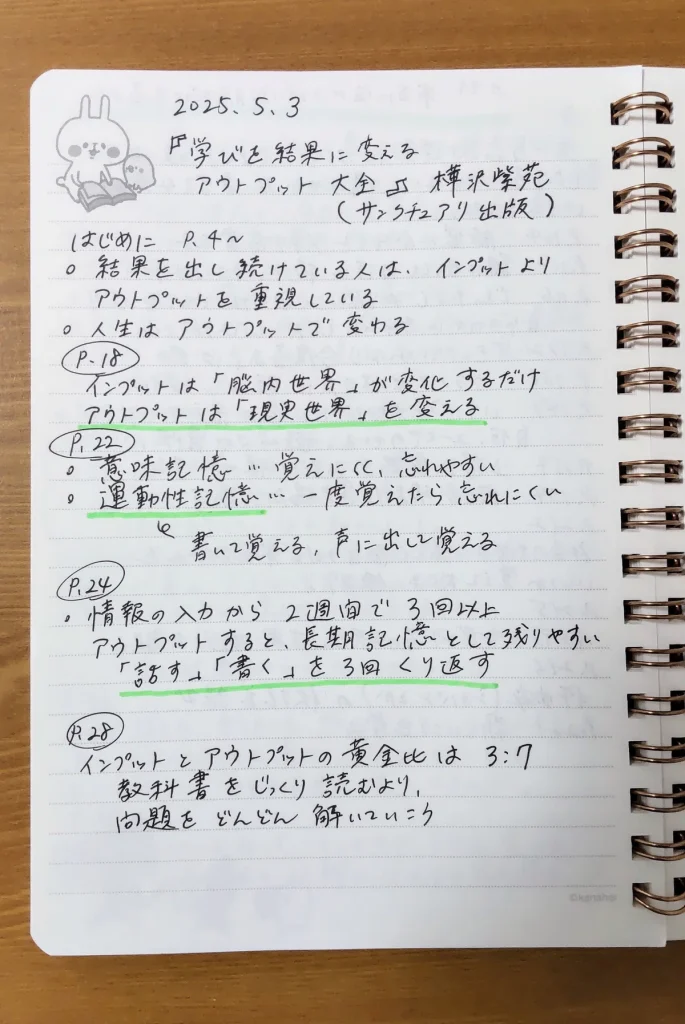 2025.5.3
『学びを結果に変える
アウトプット 大全』 樺沢紫苑
(サンクチュアリ出版)
はじめに P.4〜
○ 結果を出し続けている人は、インプットより
アウトプットを重視している
○ 人生は アウトプットで 変わる
P.18
インプットは「脳内世界」が変化するだけ
アウトプットは「現実世界」を変える
P.22
○ 意味記憶 … 覚えにくく、忘れやすい
○ 運動性記憶 … 一度覚えたら 忘れにくい
書いて覚える, 声に出して覚える
P.24
○ 情報の入力から 2週間で 3回以上
アウトプットすると、長期記憶として残りやすい
「話す」「書く」を3回くり返す
P.28
インプットとアウトプットの黄金比は 3:7
教科書をじっくり読むより,
問題を どんどん 解いていこう